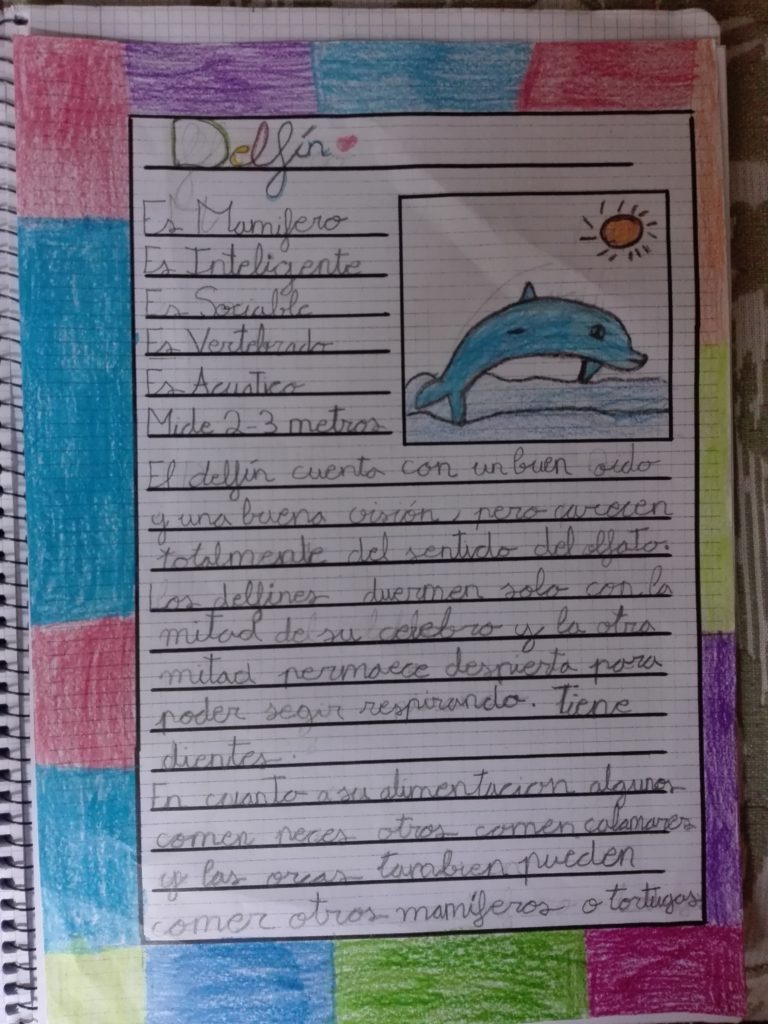 Delfín
Es Mamifero
Es Inteligente
Es Sociable
Es Vertebrado
Es Acuatico
Mide 2-3 metros
El delfín cuenta con un buen oido
y una buena visión, pero carecen
totalmente del sentido del olfato.
Los delfines duermen solo con la
mitad de su celebro y la otra
mitad permaece despierta para
poder segir respirando. Tiene
dientes.
En cuanto a su alimentacion algunos
comen peces otros comen calamares
y las orcas tambien pueden
comer otros mamíferos o tortugas